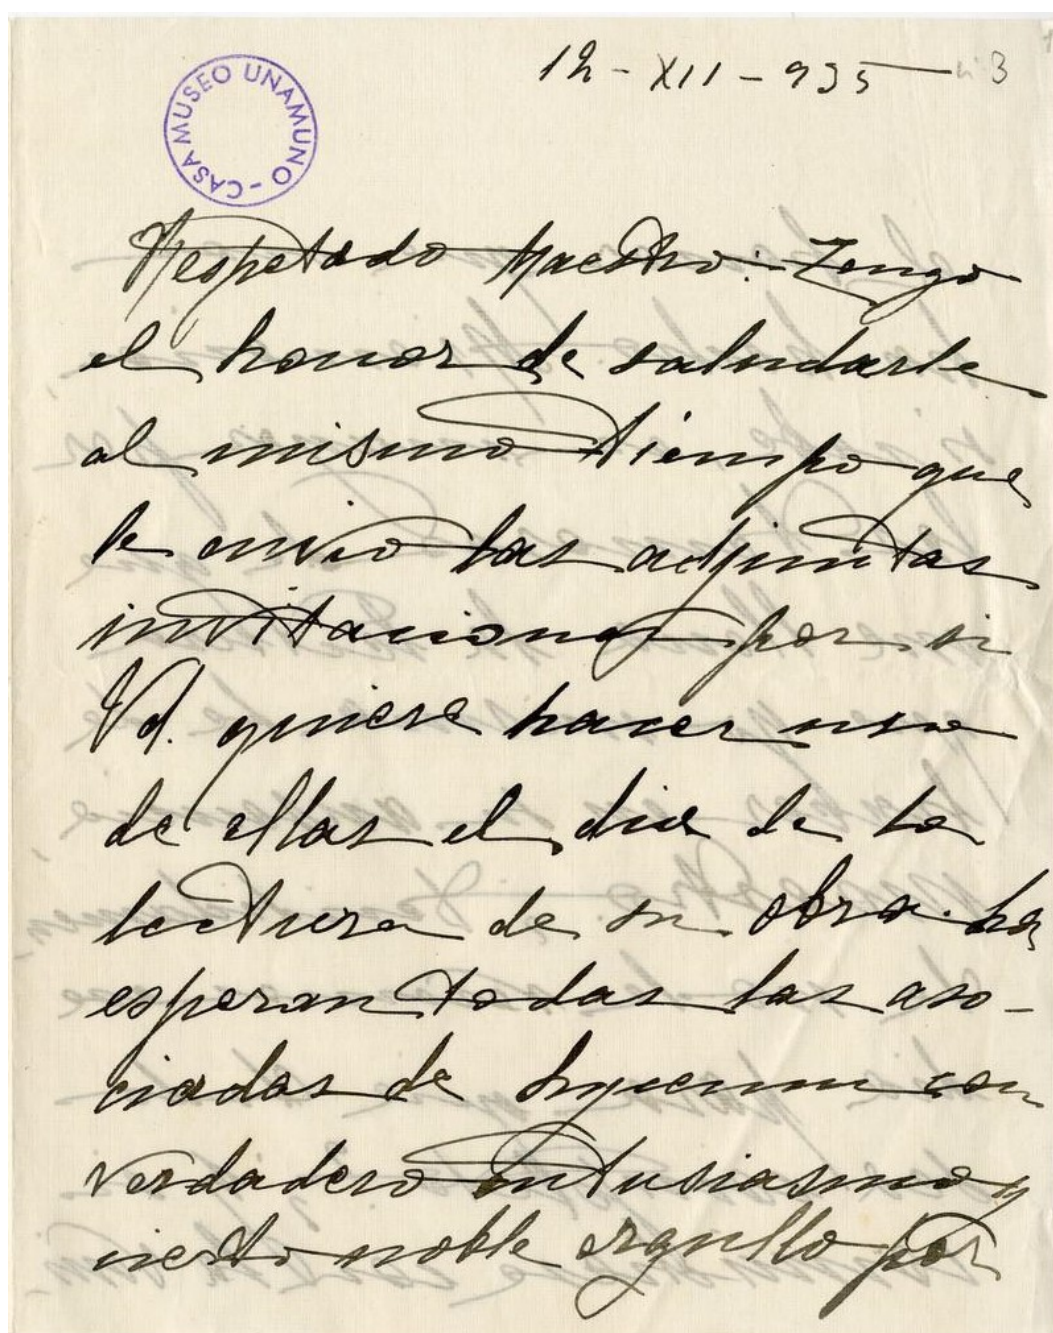 12 - XII - 935 nº 3
CASA MUSEO UNAMUNO -
Respetado Maestro: Tengo
el honor de saludarle
al mismo tiempo que
le envio las adjuntas
invitaciones por si
Vd. quiere hacer uso
de ellas el dia de la
lectura de su obra. La
esperan todas las aso-
ciadas de Lyceum con
verdadero entusiasmo y
cierto noble orgullo por